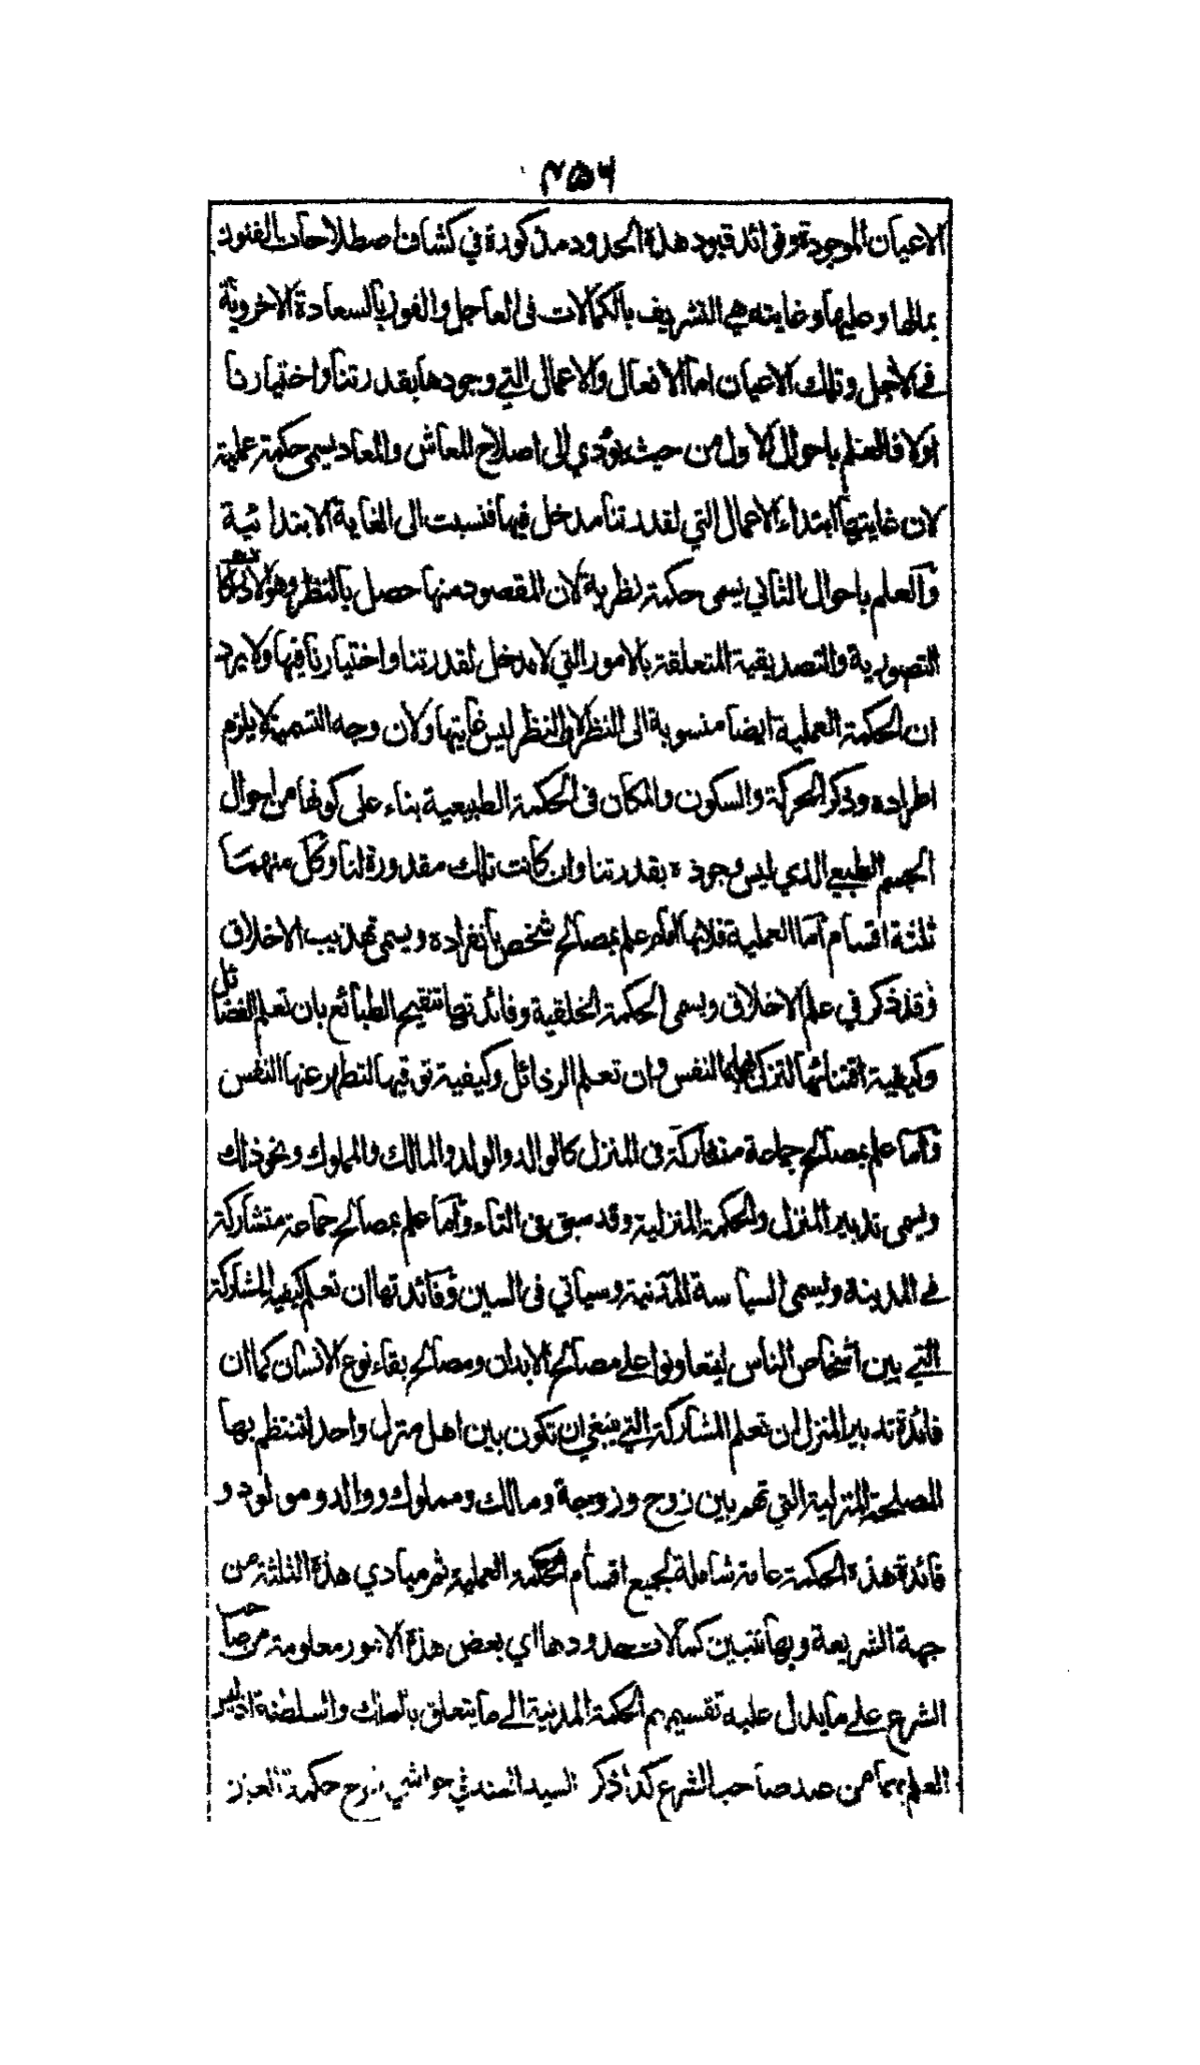 ٤٥٦
الاعيان الموجودة وفوائد قيود هذه الحدود مذكورة في كشاف اصطلاحات الفنون
بمالها وعليها وغايته هي التشريف بالكمالات في العاجل والفوز بالسعادة الاخروية
في الاجل وتلك الاعيان اما الافعال والاعمال التي وجودها بقدرتنا واختيارنا
اولا فالعلم باحوال الاول من حيث يؤدي الى اصلاح المعاش والمعاد يسمى حكمة عملية
لان غايتها ابتداء الاعمال التي لقدرتنا مدخل فيها فنسبت الى الغاية الابتدائية
والعلم باحوال الثاني يسمى حكمة نظرية لان المقصود منها حصل بالنظر وهو الادراكات
التصورية والتصديقية المتعلقة بالامور التي لا مدخل لقدرتنا واختيارنا فيها ولا يرد
ان الحكمة العملية ايضا منسوبة الى النظر لان النظر ليس غايتها ولان وجه التسمية لا يلزم
اطراده وذكر الحركة والسكون والمكان في الحكمة الطبيعية بناء على كونها من احوال
الجسم الطبيعي الذي ليس وجوده بقدرتنا وان كانت تلك مقدورة لنا وكل منهما
ثلثة اقسام اما العملية فلانها اما علم بمصالح شخص بانفراده ويسمى تهذيب الاخلاق
وقد ذكر في علم الاخلاق ويسمى الحكمة الخلقية وفائدتها تنقيح الطبائع بان تعلم الفضائل
وكيفية اقتنائها لتزكى بها النفس وان تعلم الرذائل وكيفية توقيها لتطهر عنها النفس
واما علم بمصالح جماعة متشاركة في المنزل كالوالد والولد والمالك والمملوك ونحو ذلك
ويسمى تدبير المنزل والحكمة المنزلية وقد سبق في التاء واما علم بمصالح جماعة متشاركة
في المدينة ويسمى السياسة المدنية وسياتي في السين وفائدتها ان تعلم كيفية المشاركة
التي بين اشخاص الناس ليتعاونوا على مصالح الابدان ومصالح بقاء نوع الانسان كما ان
فائدة تدبير المنزل ان تعلم المشاركة التي ينبغي ان تكون بين اهل منزل واحد لتنتظم بها
المصلحة المنزلية التي تتم بين زوج وزوجة ومالك ومملوك ووالد ومولود و
فائدة هذه الحكمة عامة شاملة لجميع اقسام الحكمة العملية ثم مبادي هذه الثلثة من
جهة الشريعة وبها تتبين كمالات حدودها اي بعض هذه الامور معلومة من صاحب
الشرع على ما يدل عليه تقسيمهم الحكمة المدنية الى ما يتعلق بالملك والسلطنة اذ ليس
العلم بهما من عند صاحب الشرع كذا ذكر السيد السند في حواشي شرح حكمة العين